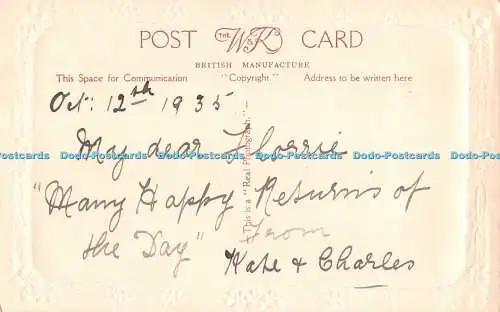 POST THE W&K CARD
BRITISH MANUFACTURE
This Space for Communication "Copyright." Address to be written here
Oct: 12th 1935
My dear Florrie
Dodo-Postcards Dodo-Postcards Dodo-Postcards Dodo-Postcards Dodo-Postcards
"Many Happy Returns of
the Day" From
Kate & Charles
This is a "Real Photograph."